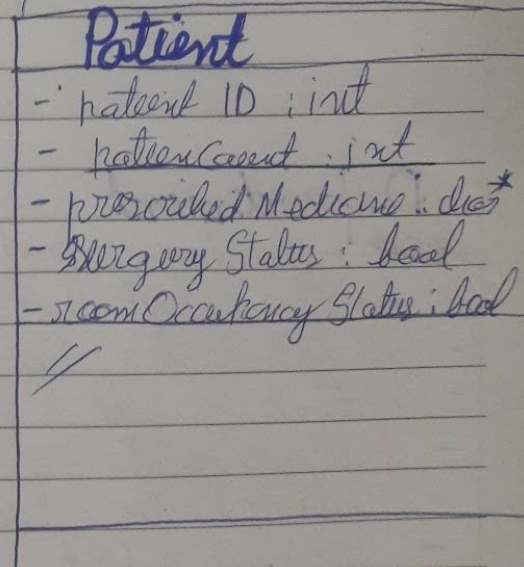 Patient
- patient ID : int
- patientCount : int
- prescribed Medicine :
- Surgery Status : bool
- roomOccupancy Status : bool
//